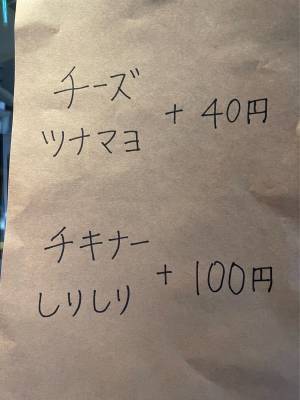 チーズ
ツナマヨ + 40円
チキナー
しりしり + 100円